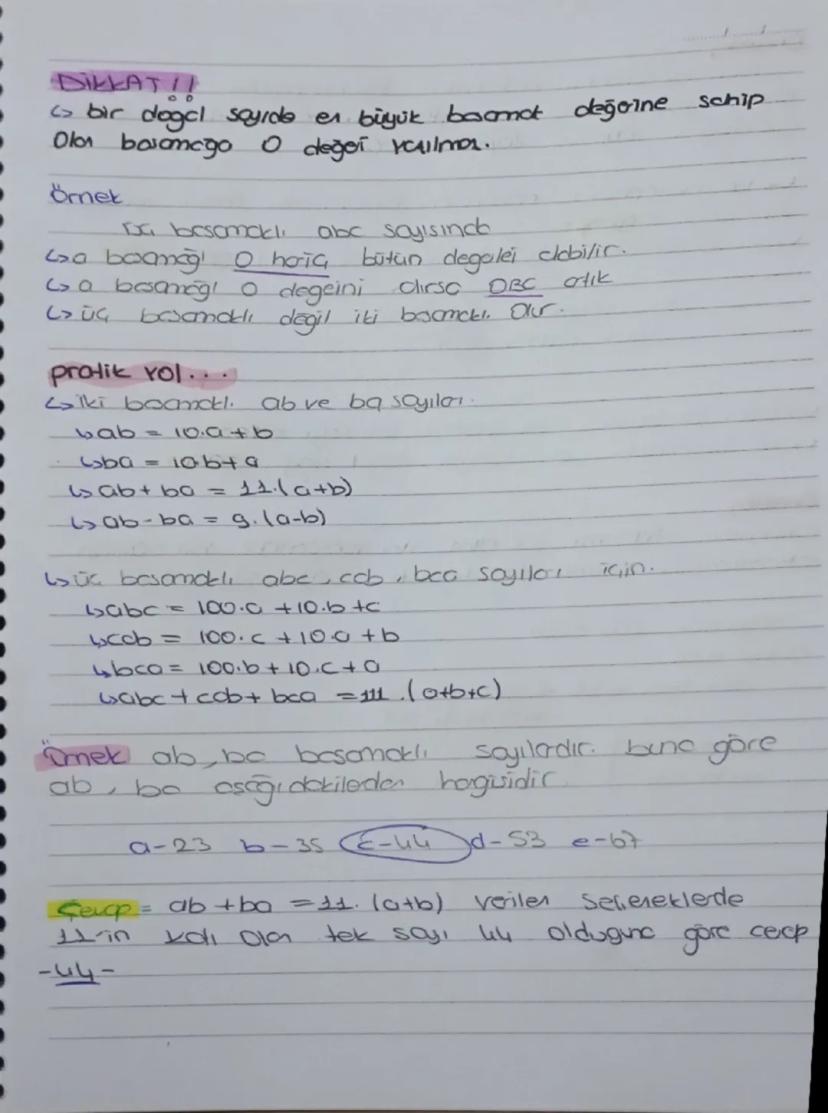 DİKKAT!!
↳ bir doğal sayıda en büyük basamak değerine sahip
Olan basamağa 0 değeri yazılmaz.
Örnek
Üç basamaklı abc sayısında
↳ a basamağı 0 hariç bütün değerleri alabilir.
↳ a basamağı 0 değerini alırsa 0BC artık
↳ üç basamaklı değil iki basamaklı olur.
pratik yol...
↳ iki basamaklı ab ve ba sayıları.
↳ ab = 10.a+b
↳ ba = 10b+a
↳ ab+ba = 11.(a+b)
↳ ab-ba = 9.(a-b)
↳ üç basamaklı abc, cab, bca sayıları için.
↳ abc = 100.a+10.b+c
↳ cab = 100.c+10.a+b
↳ bca = 100.b+10.c+a
↳ abc+cab+bca = 111.(a+b+c)
Örnek ab, ba basamaklı sayılardır. buna göre
ab, ba aşağıdakilerden hangisidir
a-23 b-35 c-44 d-53 e-67
Cevap = ab+ba = 11.(a+b) verilen seçeneklerde
11-in katı olan tek sayı 44 olduguna göre cevap
-44-